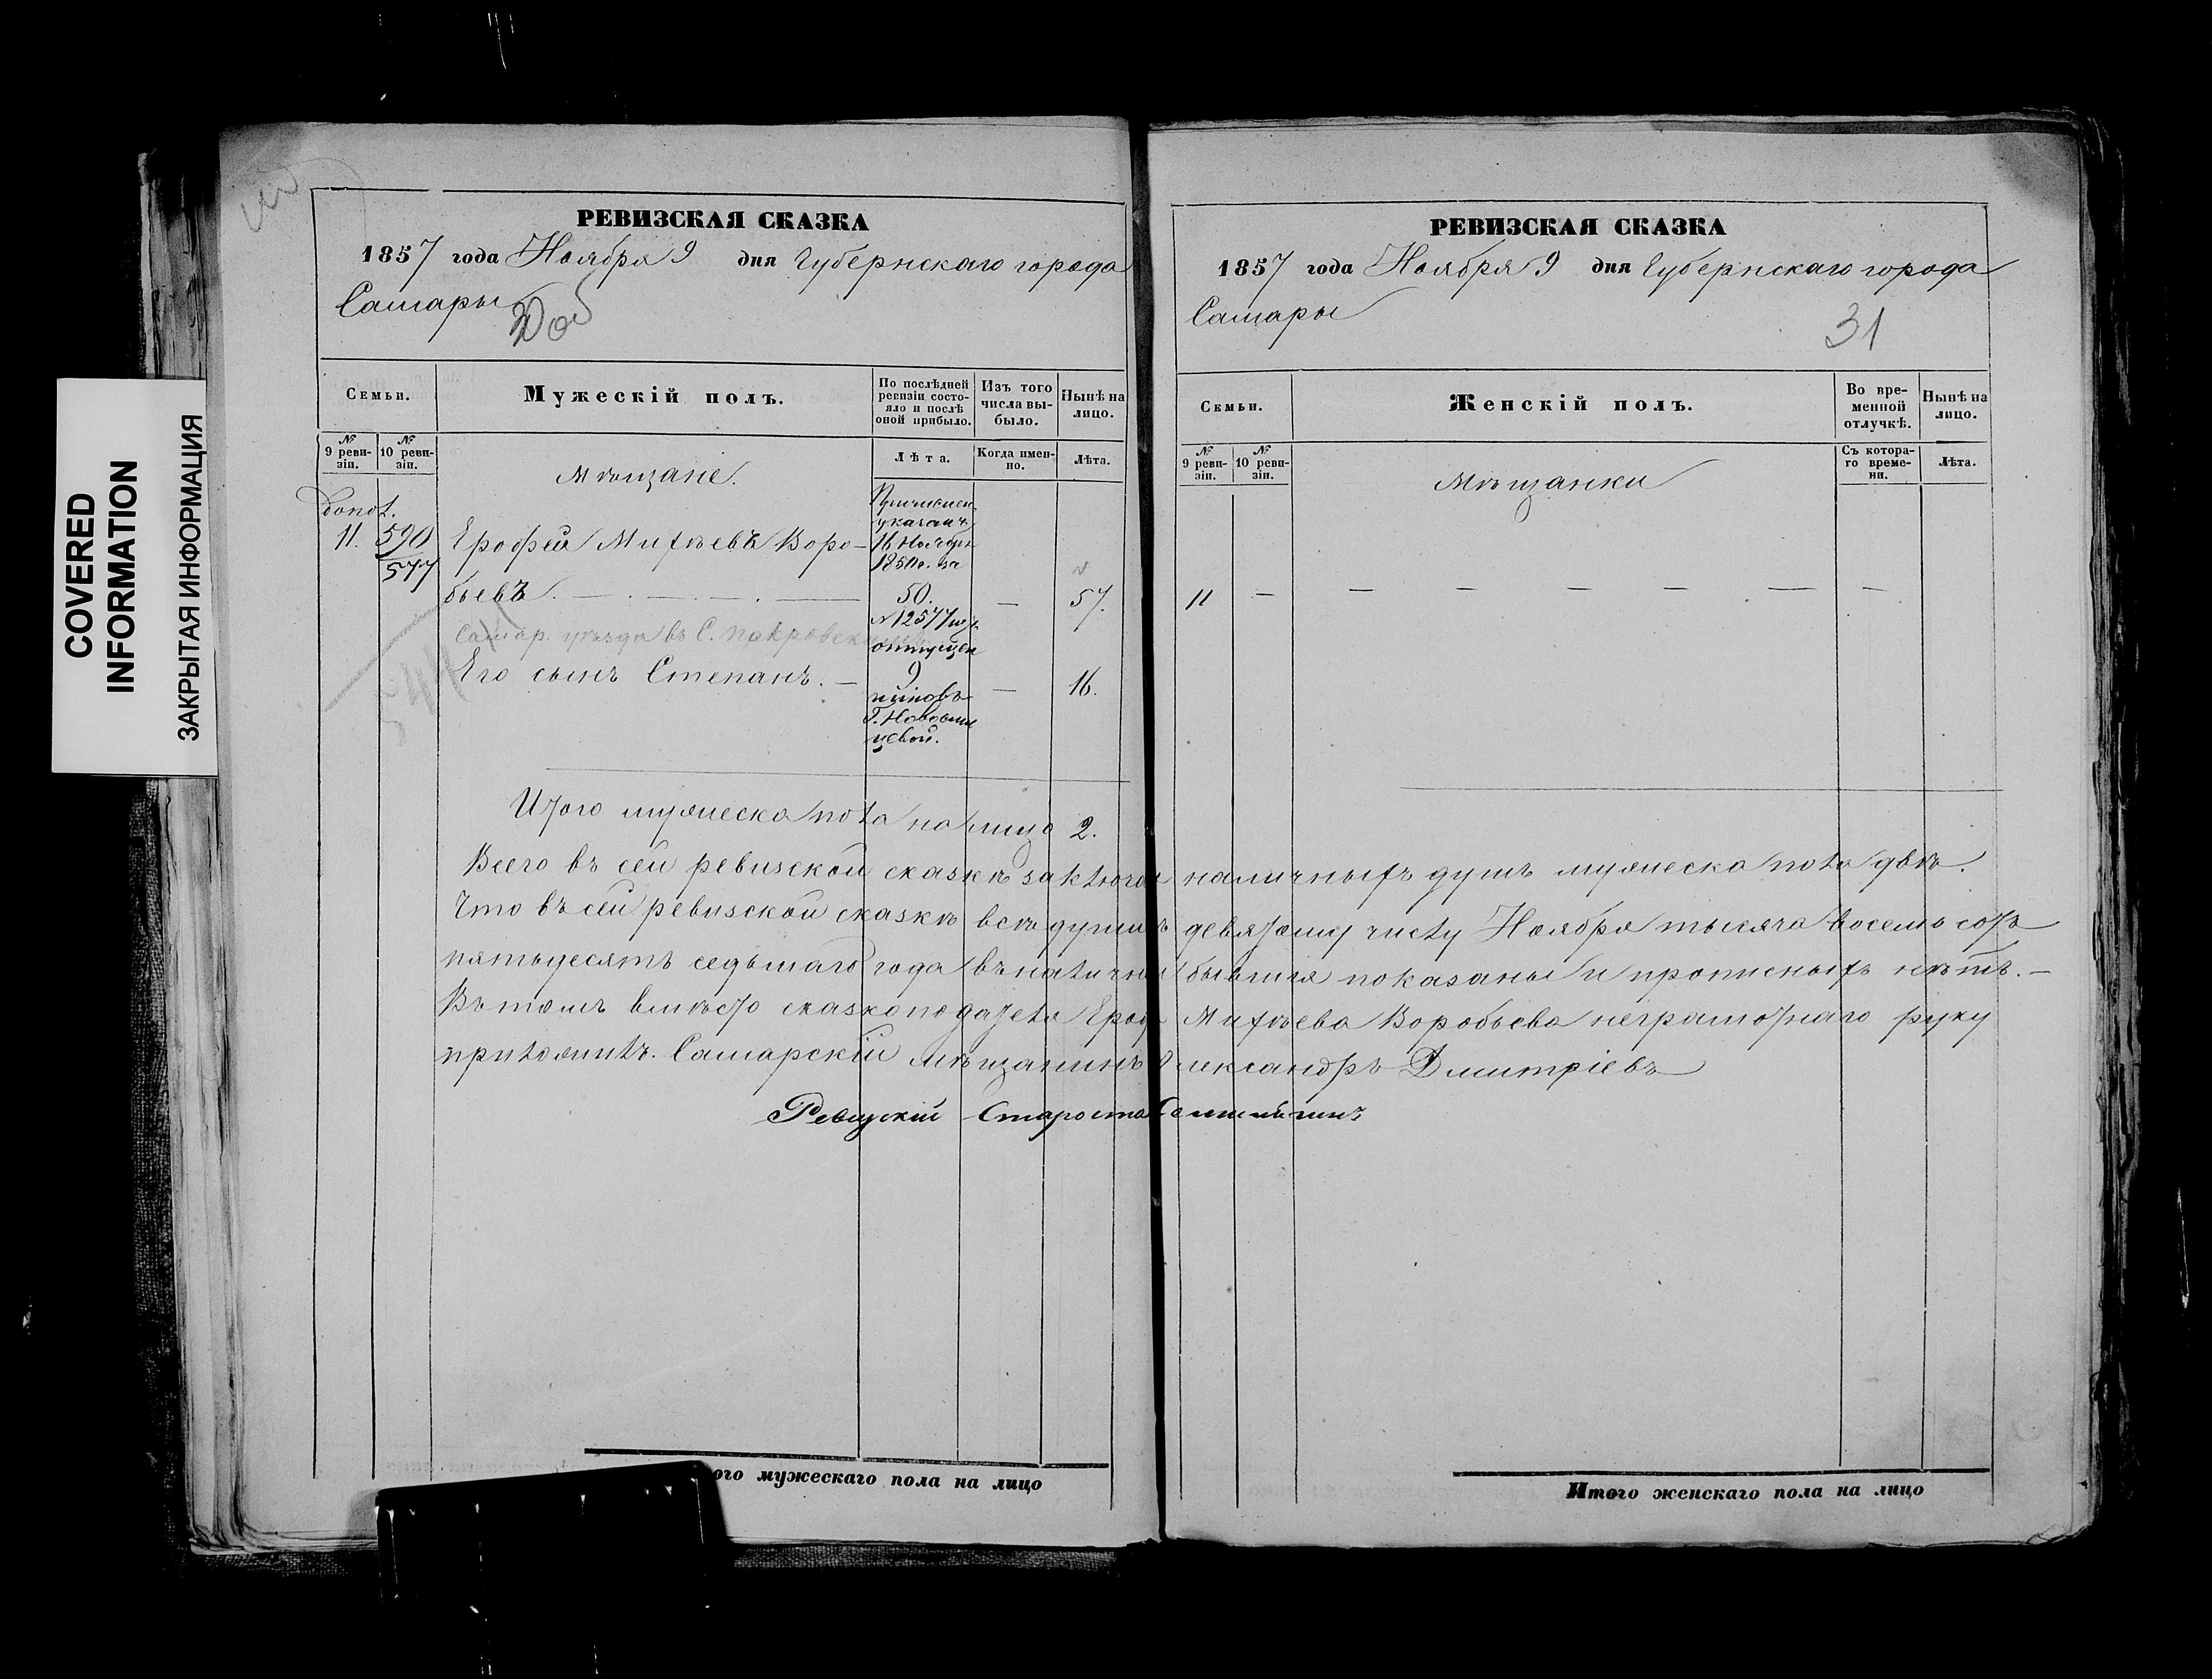 COVERED
INFORMATION
ЗАКРЫТАЯ ИНФОРМАЦИЯ
РЕВИЗСКАЯ СКАЗКА
1857 года Ноября 9 дня Губернскаго города
Самары
Семьи.
Мужескій полъ.
По послѣдней ревизіи состояло и послѣ оной прибыло.
Изъ того числа выбыло.
Нынѣ на лицо.
№ 9 ревизіи.
№ 10 ревизіи.
Мѣщане.
Лѣта.
Когда именно.
Лѣта.
допол.
11. 590
577
Ерофей Михѣевъ Воро-
бьевъ.
Причислен
указомъ
16 Ноября
1850 г. за
50.
№ 12577 изъ
отпущен
57.
Самар. уѣзда въ С. Покровском
Его сынъ Степанъ.
9
16.
Г. Новосил
цевой.
Итого мужеска пола налицо 2.
РЕВИЗСКАЯ СКАЗКА
1857 года Ноября 9 дня Губернскаго города
Самары
31
Семьи.
Женскій полъ.
Во временной отлучкѣ.
Нынѣ на лицо.
№ 9 ревизіи.
№ 10 ревизіи.
Мѣщанки
Съ котораго времени.
Лѣта.
11 — — — — — — —
Всего въ сей ревизской сказкѣ заключен наличныхъ душъ мужеска пола двѣ.
Что въ сей ревизской сказкѣ всѣ души къ девятому числу Ноября тысяча восемь сотъ
пятьдесятъ седьмаго года въ наличии бывшія показаны и прописныхъ нѣтъ.—
Въ томъ вмѣсто сказкоподателя Ероф Михѣева Воробьева неграмотнаго руку
приложилъ. Самарскій мѣщанинъ Александръ Дмитріевъ
Ревизскій Староста
ого мужескаго пола на лицо
Итого женскаго пола на лицо